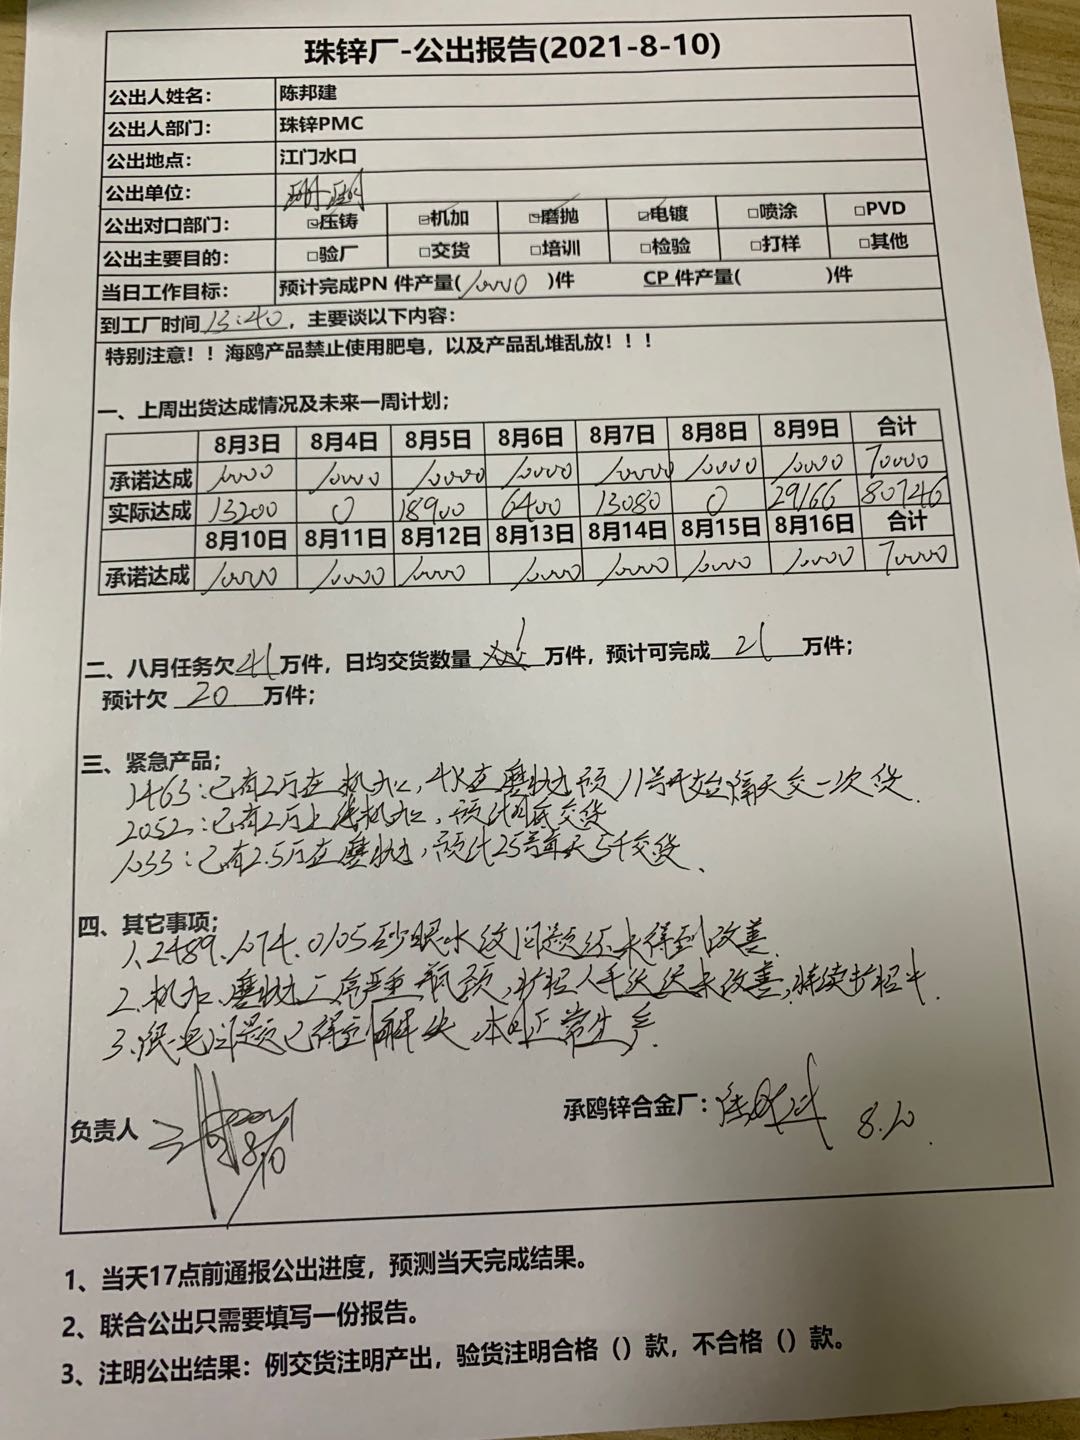 珠锌厂-公出报告(2021-8-10)
公出人姓名： 陈邦建
公出人部门： 珠锌PMC
公出地点： 江门水口
公出单位：
公出对口部门： ☑压铸 ☑机加 ☑磨抛 ☑电镀 □喷涂 □PVD
公出主要目的： □验厂 □交货 □培训 □检验 □打样 □其他
当日工作目标： 预计完成PN 件产量( 10000 )件 CP 件产量( )件
到工厂时间 13:40，主要谈以下内容：
特别注意！！海鸥产品禁止使用肥皂，以及产品乱堆乱放！！！
一、上周出货达成情况及未来一周计划；
8月3日 8月4日 8月5日 8月6日 8月7日 8月8日 8月9日 合计
承诺达成 10000 10000 10000 10000 10000 10000 10000 70000
实际达成 13200 0 18900 6400 13080 0 29166 80746
8月10日 8月11日 8月12日 8月13日 8月14日 8月15日 8月16日 合计
承诺达成 10000 10000 10000 10000 10000 10000 10000 70000
二、八月任务欠 41 万件，日均交货数量 1 万件，预计可完成 21 万件；
预计欠 20 万件；
三、紧急产品；
1463：已有2万在机加，4K在磨抛 预11号开始隔天交一次货.
2052：已有2万上线机加，预计月底交货
1033：已有2.5万在磨抛，预计25号每天5千交货.
四、其它事项；
1、2489、1074、0105砂眼水纹问题还未得到改善.
2、机加、磨抛工序严重瓶颈，扩招人手还未改善，持续扩招中.
3、问题已得到解决，本月正常生产.
负责人 8/10
承鸥锌合金厂： 8.10.
1、当天17点前通报公出进度，预测当天完成结果。
2、联合公出只需要填写一份报告。
3、注明公出结果：例交货注明产出，验货注明合格（）款，不合格（）款。